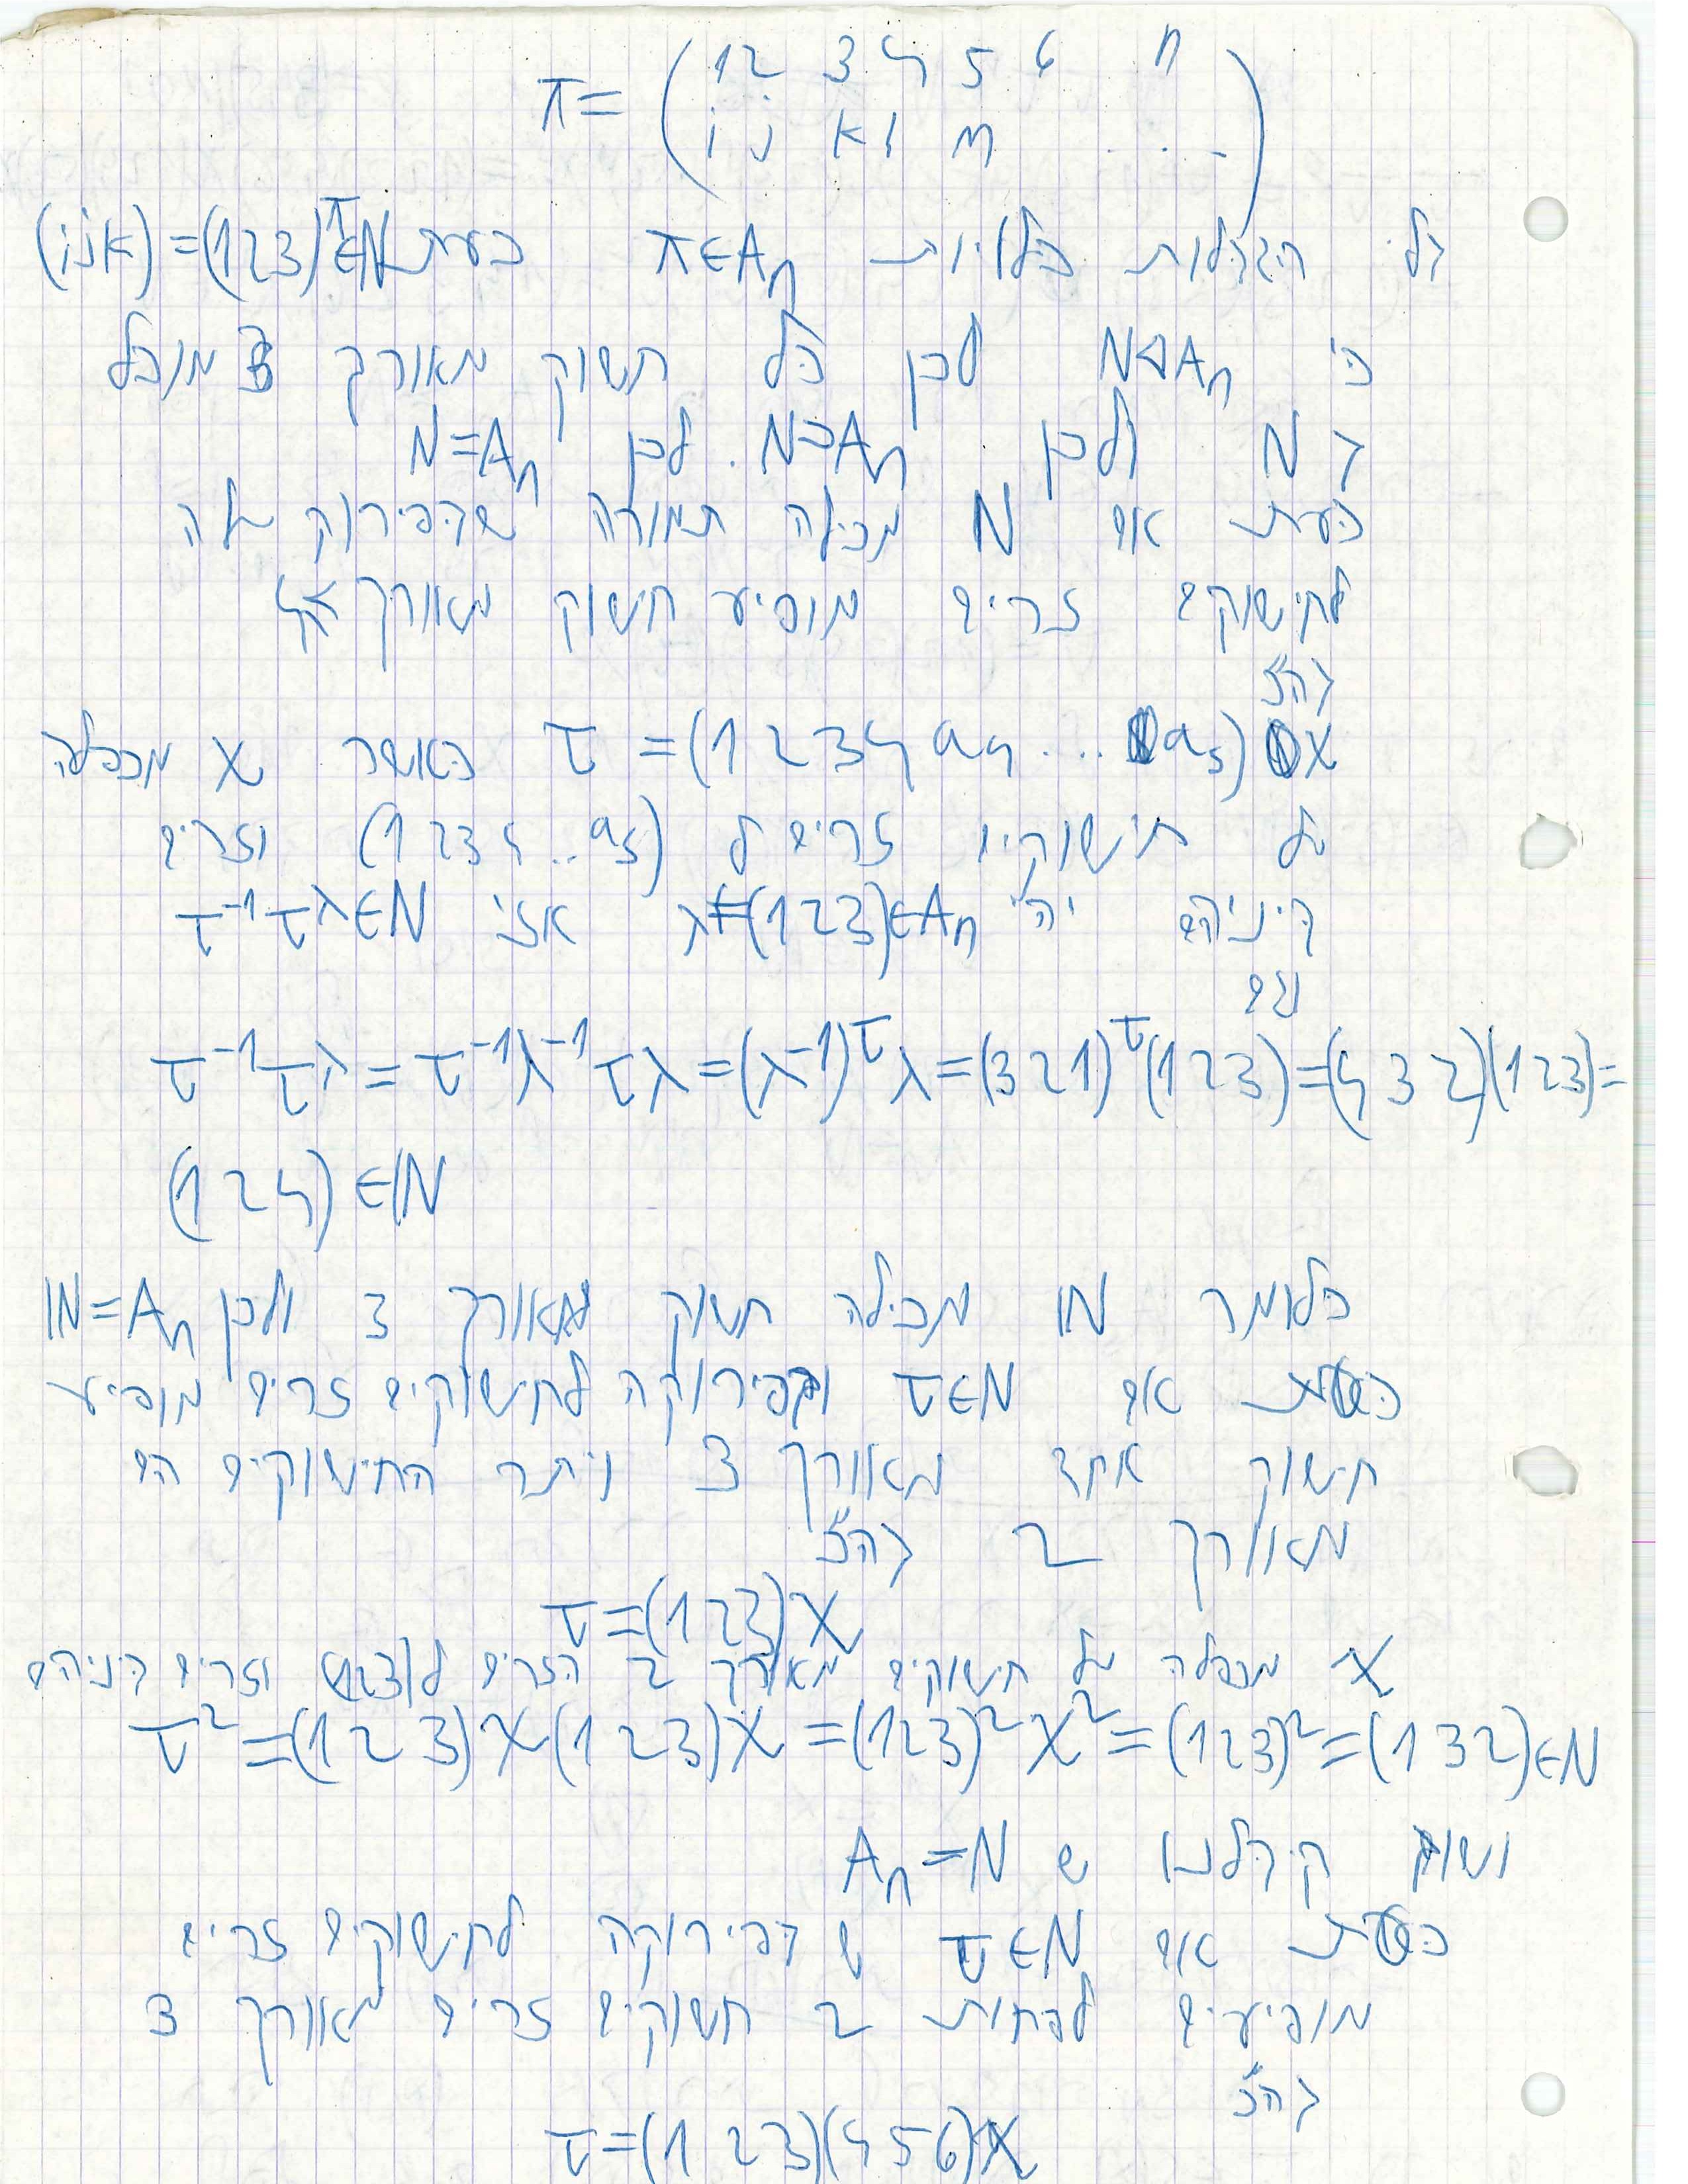 π = ( 1 2 3 4 5 6 n
i j k l m . . . )
בלי הגבלת כלליות π∈Aₙ כעת (ijk)=(123)^π∈N
כי N⊲Aₙ לכן כל חשוק מאורך 3 מוכל
ב N ולכן N⊃Aₙ. לכן N=Aₙ
כעת אם N מכילה תמורה שבפירוק שלה
לחישוקים זרים מופיע חשוק מאורך ≥4
בה"כ
τ = (1 2 3 4 a₄ ... a₅) X כאשר X מכפלה
של חישוקים זרים ל (1 2 3 4 .. a₅) וזרים
ביניהם יהי λ=(1 2 3)∈Aₙ אזי τ⁻¹τ^λ∈N
וגם
τ⁻¹τ^λ = τ⁻¹λ⁻¹τλ = (λ⁻¹)^τ λ = (3 2 1)^τ (1 2 3) = (4 3 2)(1 2 3) =
(1 2 4) ∈ N
כלומר N מכילה חשוק מאורך 3 ולכן N=Aₙ
כעת אם τ∈N ובפירוקה לחישוקים זרים מופיע
חישוק אחד מאורך 3 ויתר החישוקים הם
מאורך 2 בה"כ
τ=(1 2 3)X
X מכפלה של חישוקים מאורך 2 הזרים ל(123) וזרים ביניהם
τ² = (1 2 3)X(1 2 3)X = (123)²X² = (123)² = (1 3 2)∈N
ושוב קיבלנו ש Aₙ=N
כעת אם τ∈N ש בפירוקה לחישוקים זרים
מופיעים לפחות 2 חשוקים זרים מאורך 3
בה"כ
τ=(1 2 3)(4 5 6)X